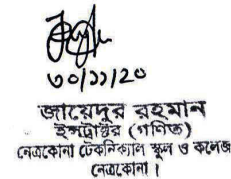 ৩০/১১/২০
জায়েদুর রহমান
ইন্সট্রাক্টর (গণিত)
নেত্রকোনা টেকনিক্যাল স্কুল ও কলেজ
নেত্রকোনা।